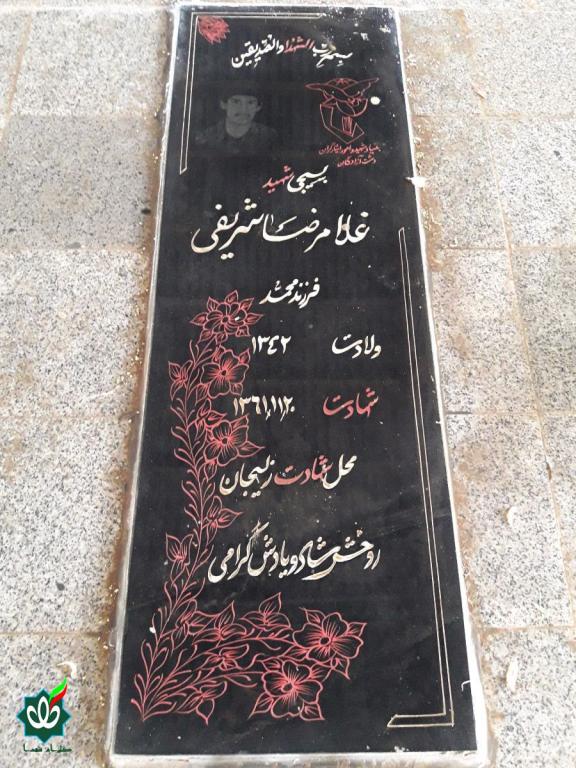 بسم رب الشهدا والصدیقین
بنیاد شهید و امور ایثارگران
دشت آزادگان
بسیجی شهید
غلامرضا شریفی
فرزند محمد
ولادت ۱۳۴۲
شهادت ۱۳۶۱٫۱٫۲۰
محل شهادت زبیجان
روحش شاد و یادش گرامی